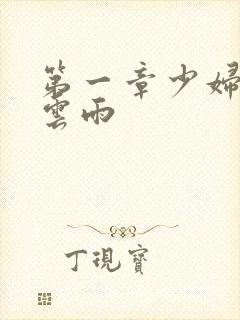 第一章少婦
雲雨
丁現寶